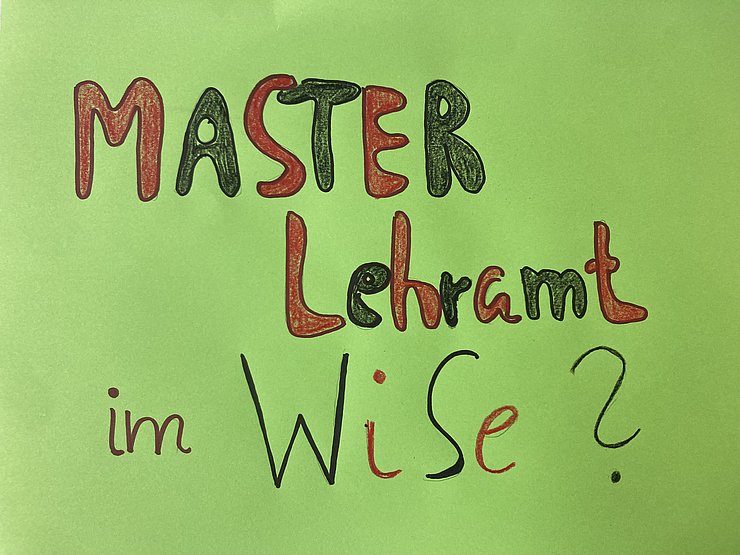 MASTER
Lehramt
im WiSe ?